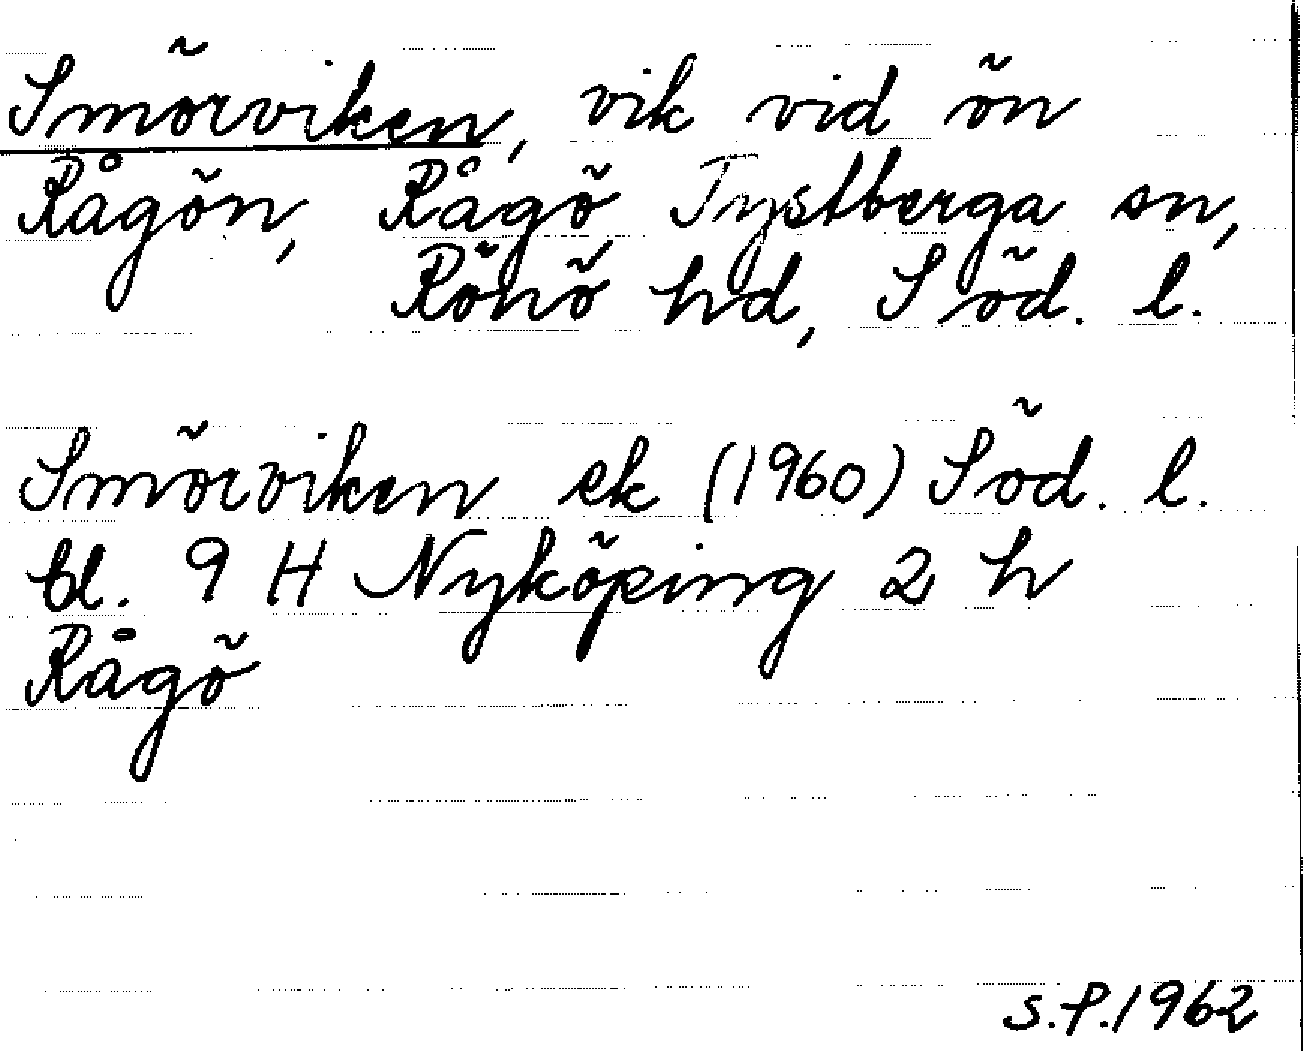 Smörviken, vik vid ön
Rågön, Rågö, Tystberga sn,
Rönö hd, Söd. l.
Smörviken ek (1960) Söd. l.
bl. 9 H Nyköping 2 h
Rågö
S.P. 1962